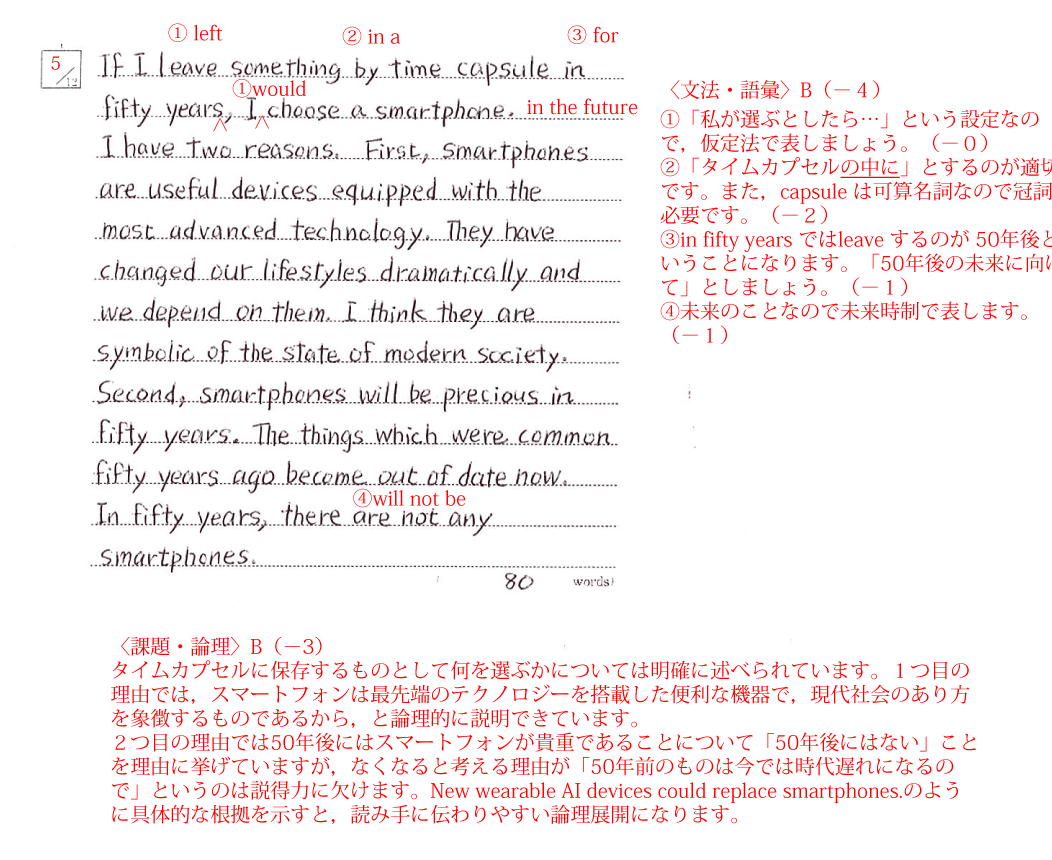 ① left
② in a
③ for
5
12
If I leave something by time capsule in
①would
fifty years, I choose a smartphone. in the future
I have two reasons. First, smartphones
are useful devices equipped with the
most advanced technology. They have
changed our lifestyles dramatically and
we depend on them. I think they are
symbolic of the state of modern society.
Second, smartphones will be precious in
fifty years. The things which were common
fifty years ago become out of date now.
④will not be
In fifty years, there are not any
smartphones.
80 words)
〈文法・語彙〉B（－４）
①「私が選ぶとしたら…」という設定なの
で，仮定法で表しましょう。（－０）
②「タイムカプセルの中に」とするのが適切
です。また，capsule は可算名詞なので冠詞
必要です。（－２）
③in fifty years ではleave するのが 50年後と
いうことになります。「50年後の未来に向け
て」としましょう。（－１）
④未来のことなので未来時制で表します。
（－１）
〈課題・論理〉B（－3）
タイムカプセルに保存するものとして何を選ぶかについては明確に述べられています。１つ目の
理由では，スマートフォンは最先端のテクノロジーを搭載した便利な機器で，現代社会のあり方
を象徴するものであるから，と論理的に説明できています。
２つ目の理由では50年後にはスマートフォンが貴重であることについて「50年後にはない」こと
を理由に挙げていますが，なくなると考える理由が「50年前のものは今では時代遅れになるの
で」というのは説得力に欠けます。New wearable AI devices could replace smartphones.のよう
に具体的な根拠を示すと，読み手に伝わりやすい論理展開になります。